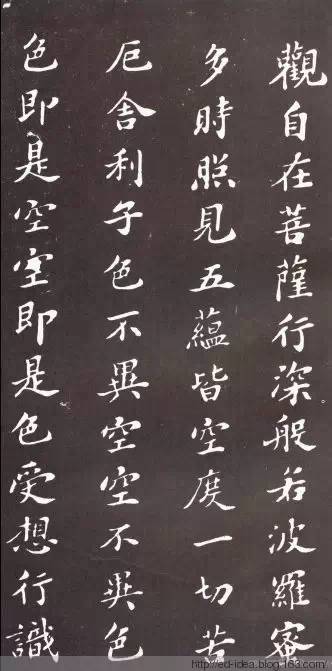 觀自在菩薩行深般若波羅蜜
多時照見五蘊皆空度一切苦
厄舍利子色不異空空不異色
色即是空空即是色受想行識
http://ed-idea.blog.163.com